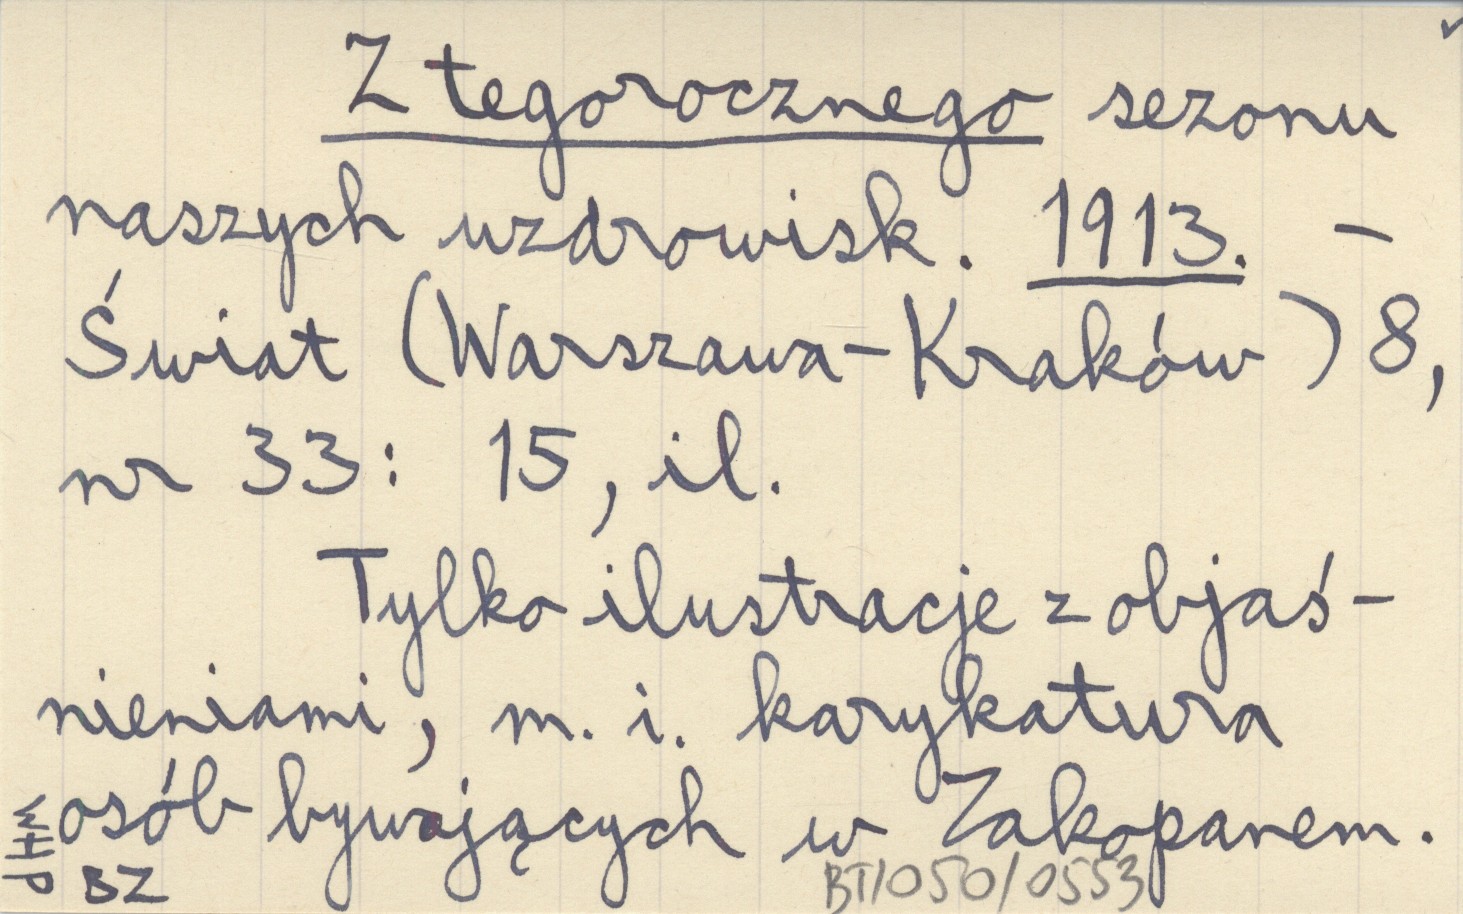 Z tegorocznego sezonu
naszych uzdrowisk. 1913. –
Świat (Warszawa–Kraków) 8,
nr 33: 15, il.
Tylko ilustracje z objaś–
nieniami, m. i. karykatura
osób bywających w Zakopanem.
BZ
BT/050/0553